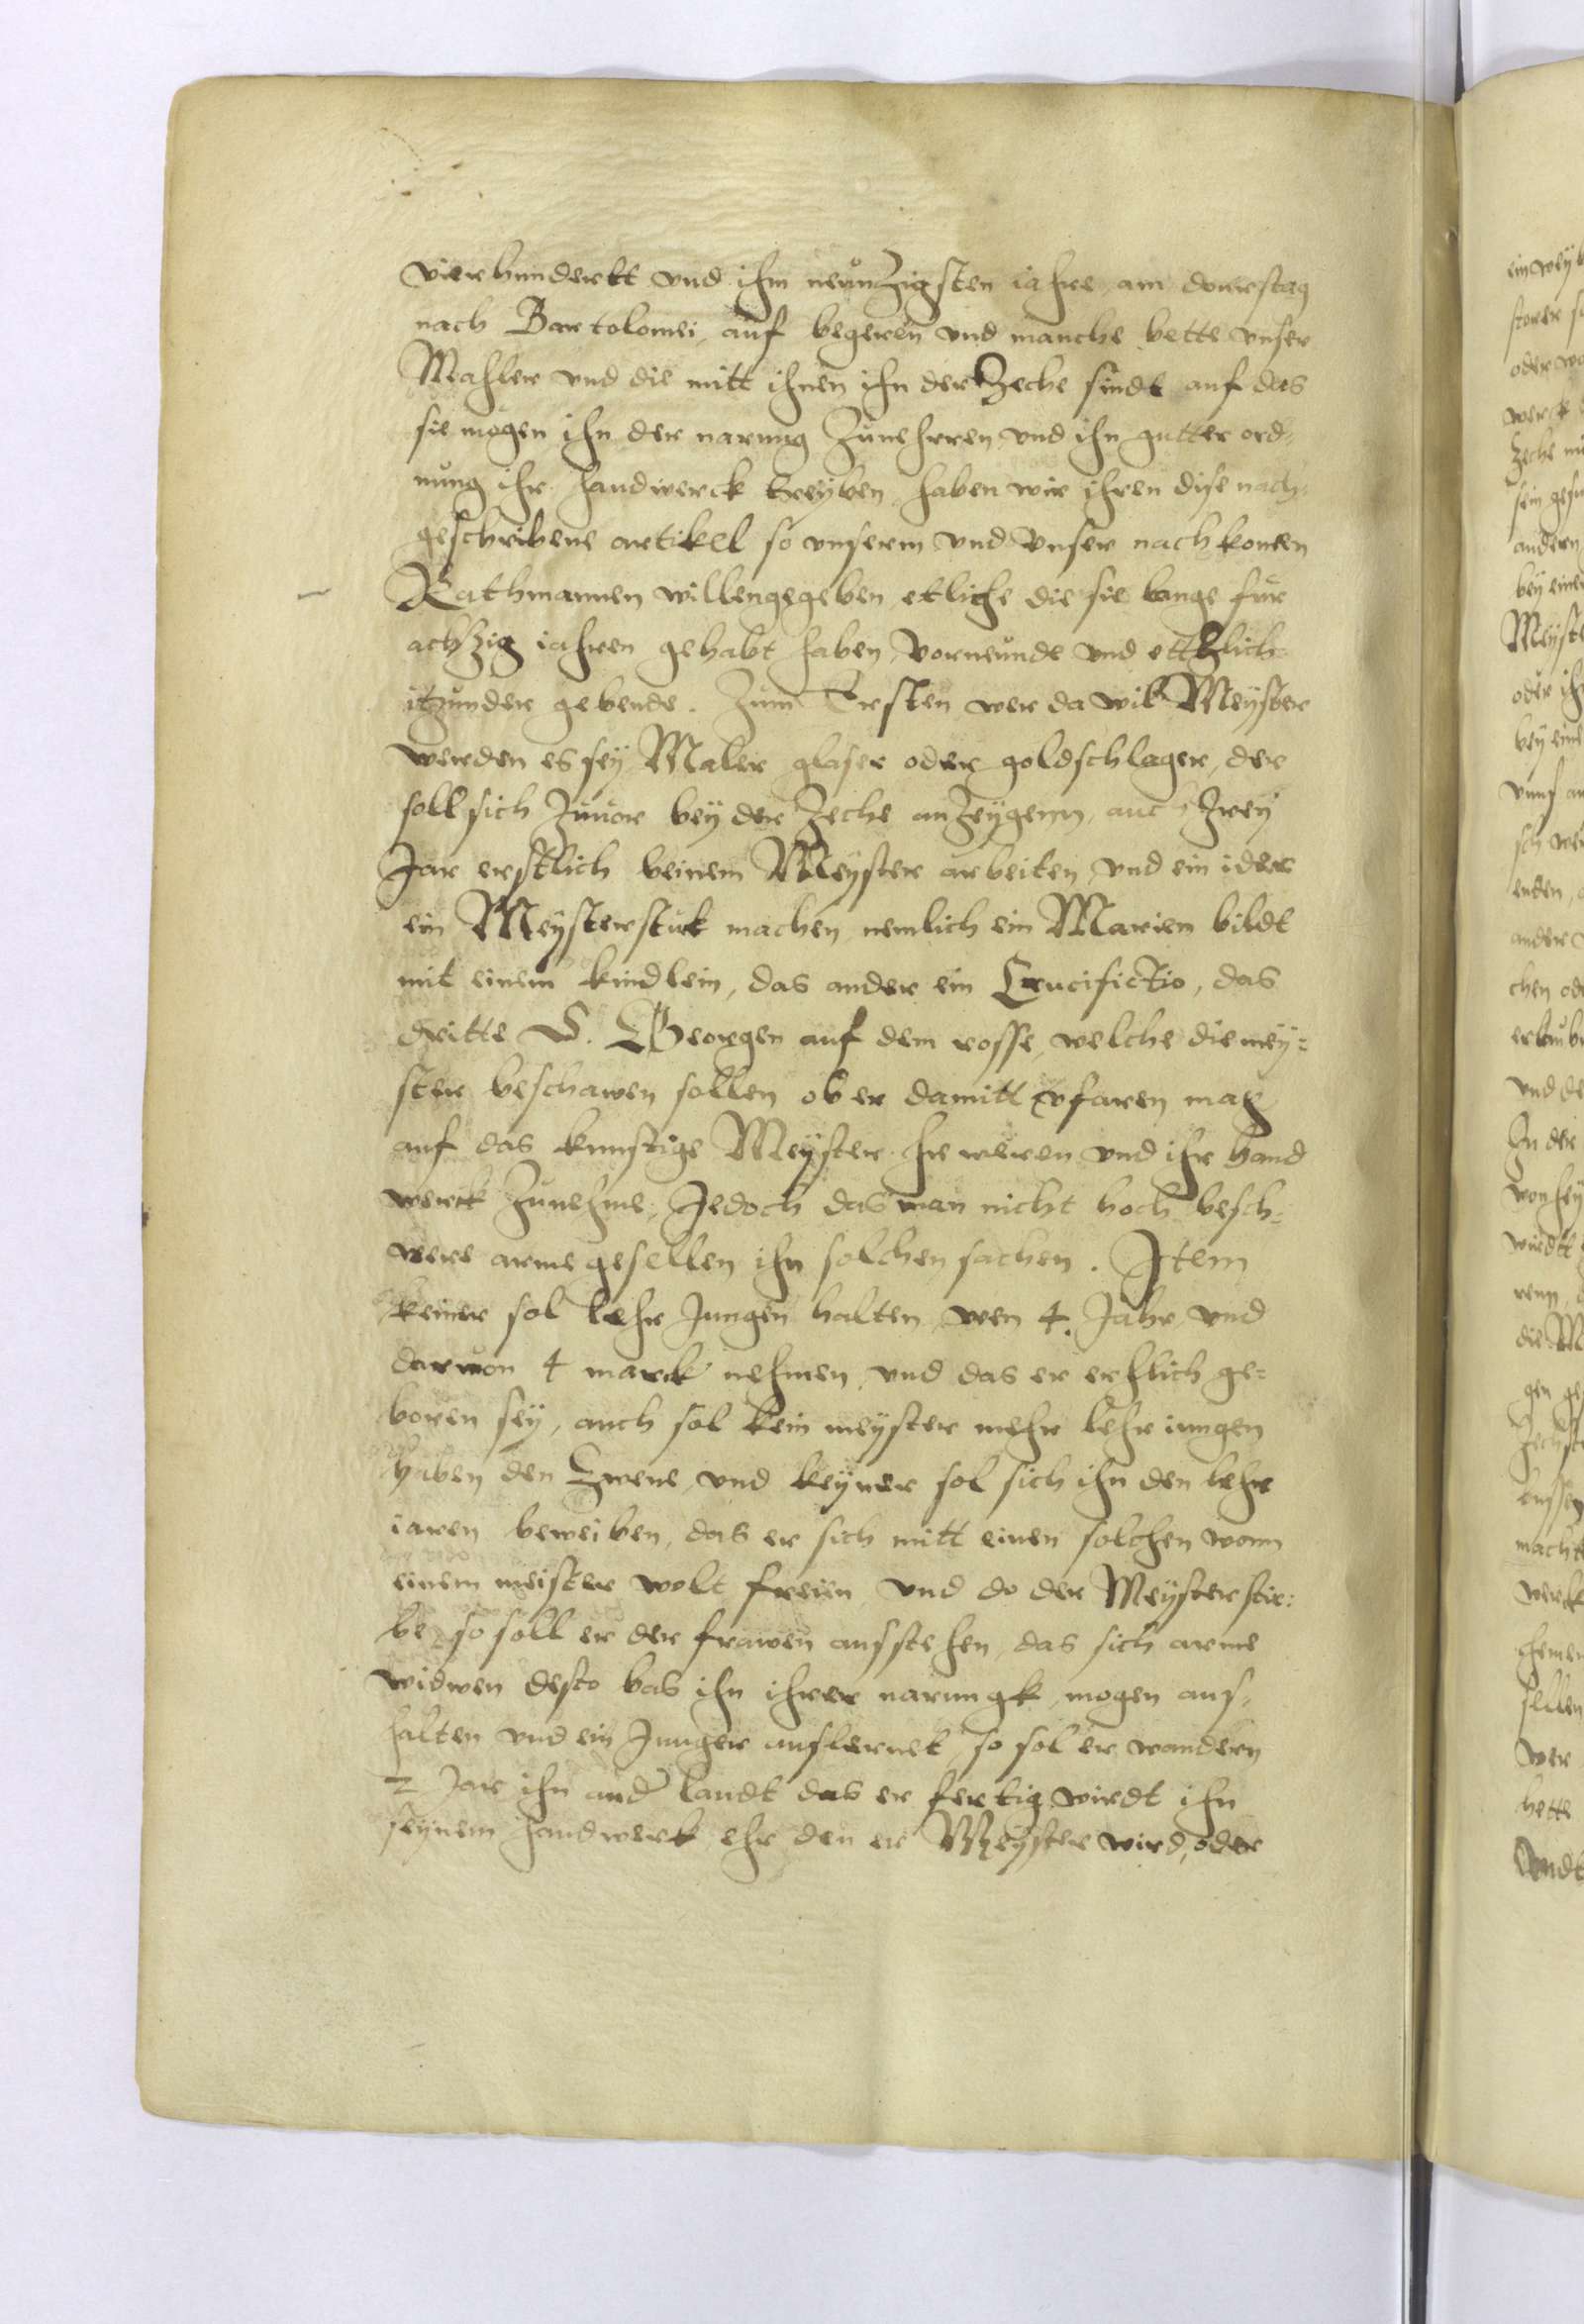 vierhundertt vnd ihm neunzigsten iahre, am donrstag
nach Bartolomei, auf begeren vnd manche bette vnser
Mahler vnd die mitt ihnen ihn der Zeche sindt auf das
sie mögen ihn der narung zunehrren, vnd ihn gutter ord-
nung ihr handwerck treyben, haben wir ihren dise nach-
geschribene artikel so vnserm vnd vnser nachkomen
Rathmannen willen gegeben etliche die sie lange für
achzig iahren gehabt haben, vorneunde vnd ettzlich
itzunder gebende. Zum Ersten wer da wil Meyster
werden es sey Maler glaser oder goldschlager, der
soll sich zuuor bey der Zeche anzeygenn, auc zwey
Jar erstlich beinem Meyster arbeiten, vnd ein ider
ein Meysterstuk machen, nemlich ein Marien bildt
mit einem kindlein, das ander ein Crucifictio, das
dritte S. Georgen auf dem rosse, welche die mey-
ster beschawen sollen ob er damitt vfaren mag
auf das kunftige Meyster hie weren vnd ihr hand
werck zunehme, Jedoch das man nicht hoch besch-
were arme gesellen ihn solchen sachen. Item
keiner sol lehr Jungen halten, wen 4. Jahr, vnd
daruon 4 marck nehmen, vnd das er erhlich ge-
boren sey, auch sol kein meyster mehr lehr iungen
haben den Zwene, vnd keyner sol sich ihn den lehr
iaren beweiben, das er sich mitt einen solchen wonn
einem meister wolt freien, vnd do der Meyster stir-
be, so soll er der frawen ausstehen, das sich arme
widwen desto bas ihn ihrer narungk, mogen auf-
halten vnd ein Junger auslernet so sol er wandern
2 Jar ihn and landt das er fertig wirdt ihn
seynem handwerk ehr den er Meyster wird, oder